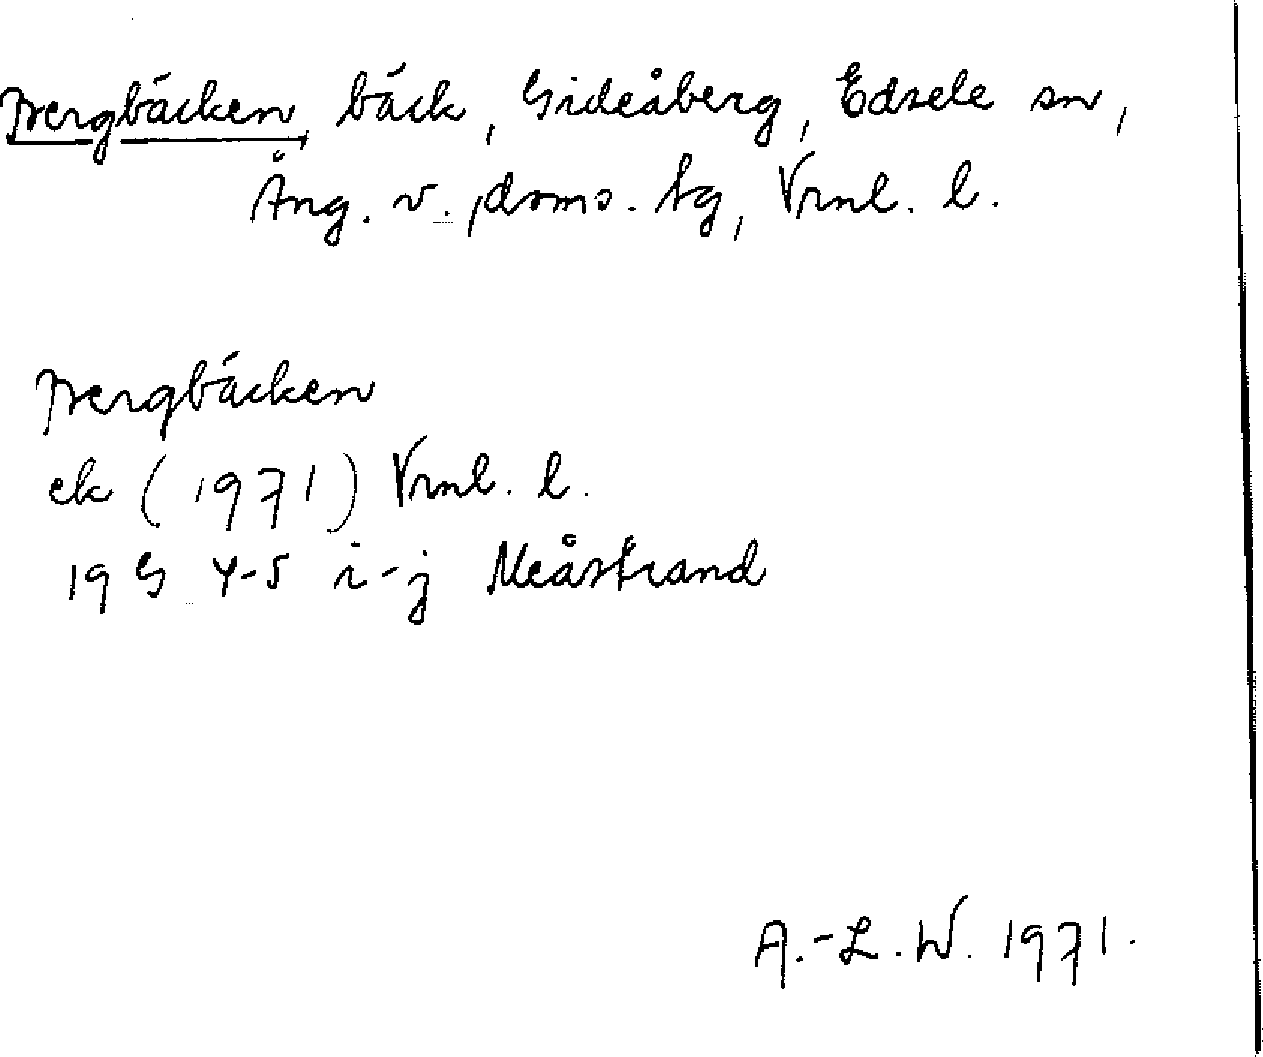 Bergbäcken, bäck, Gideåberg, Edsele sn,
Ång. v. doms. tg, Vrnl. l.
Bergbäcken
ek (1971) Vrnl. l.
19 G 4-5 i-j Meåstrand
A.-L.W. 1971.